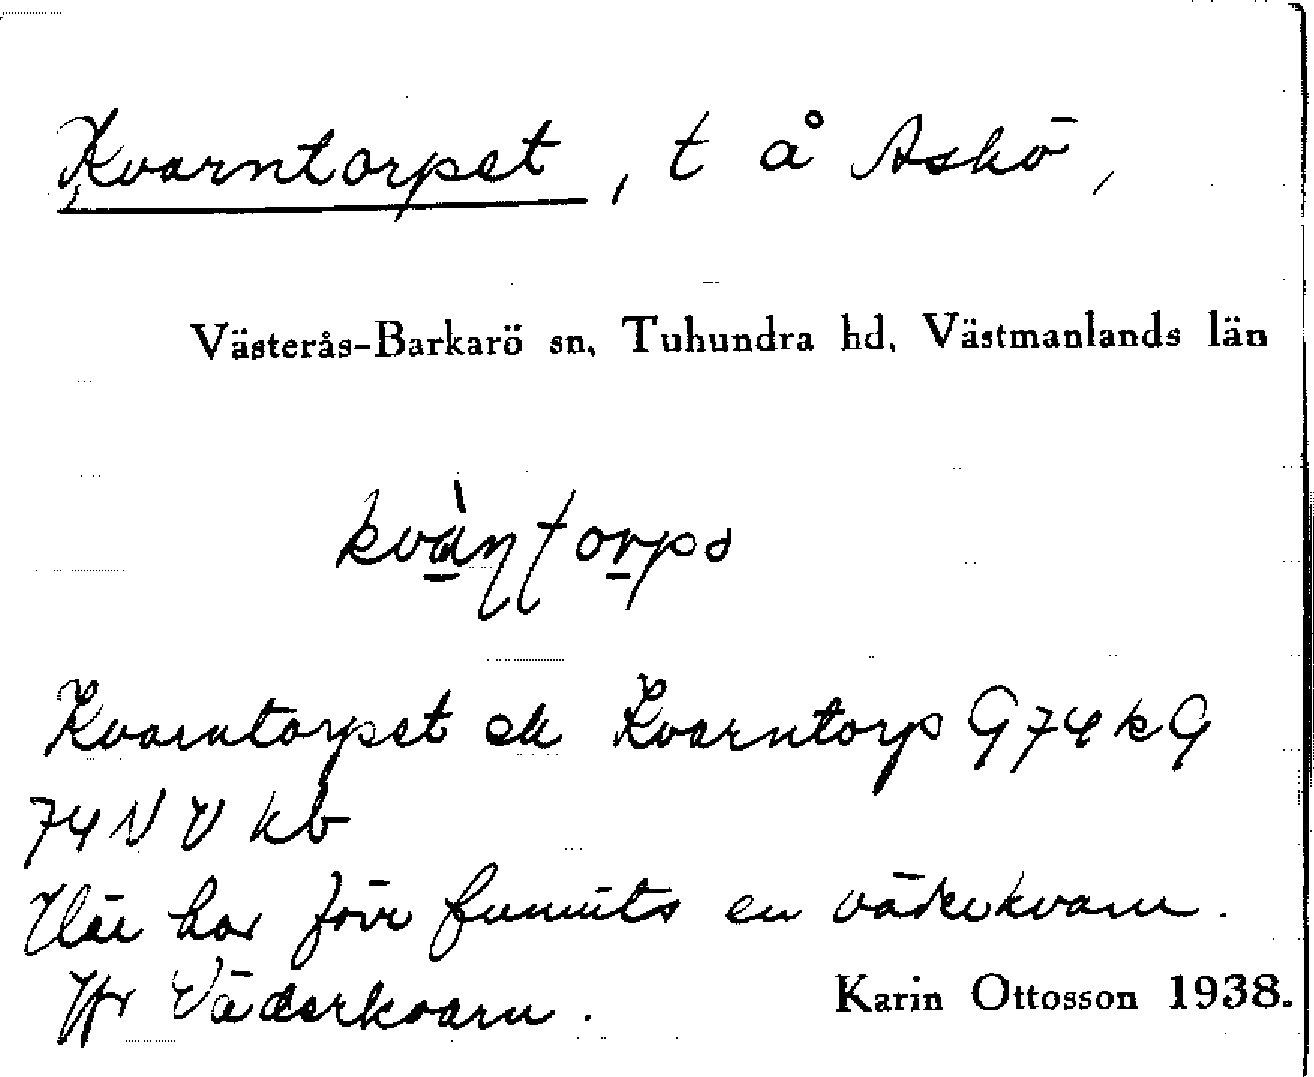 Kvarntorpet, t å Askö,
Västerås-Barkarö sn, Tuhundra hd, Västmanlands län
Kvarntorpet ek Kvarntorp G 74 k G
74 N V kb
Här har förr funnits en väderkvarn.
Jfr Väderkvarn.
Karin Ottosson 1938.